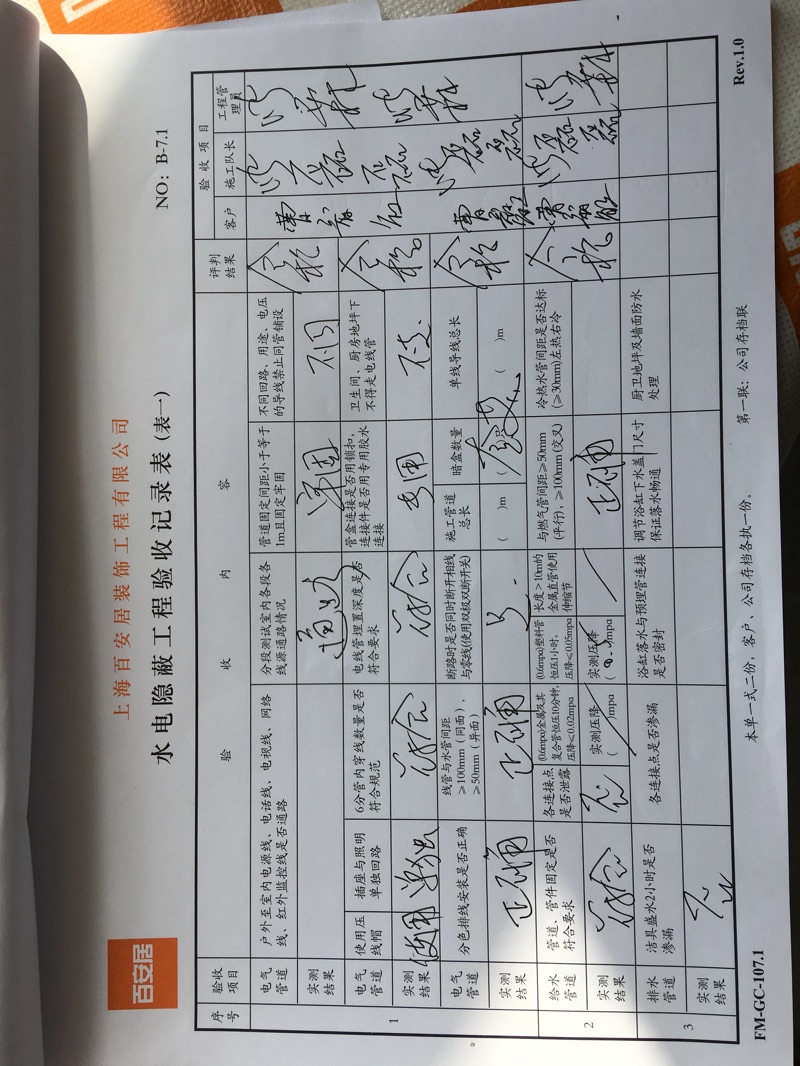 百安居
上海百安居装饰工程有限公司
水电隐蔽工程验收记录表(表一)
NO：B-7.1
序号 验收项目 验收内容 评判结果 验收项目
客户 施工队长 工程管理员
1
电气管道
户外至室内电源线、电话线、电视线、网络线、红外监控线是否通路
分段测试室内各段各线源通路情况
管道固定间距小于等于1m且固定牢固
不同回路、用途、电压的导线禁止同管铺设
合格
实测结果
通过
牢固
不同
电气管道
使用压线帽
插座与照明单独回路
6分管内穿线数量是否符合规范
电线管埋置深度是否符合要求
管盒连接是否用锁扣,连接件是否用专用胶水连接
卫生间、厨房地坪下不得走电线管
合格
实测结果
使用
单独
符合
符合
电气管道
分色排线安装是否正确
线管与水管间距≥100mm（同面），≥50mm（异面）
断路时是否同时断开相线与零线(使用双极双断开关)
施工管道总长
暗盒数量
单线导线总长
合格
实测结果
正确
正确
( )m
( )m
2
给水管道
管道、管件固定是否符合要求
各连接点是否泄露
(0.6mpa)金属及其复合管恒压10分钟,压降≤0.02mpa
(0.6mpa)塑料管恒压1小时,压降≤0.05mpa
长度＞10m的金属直管使用伸缩节
与燃气管间距≥50mm(平行)，≥100mm(交叉)
冷热水管间距是否达标(≥30mm)左热右冷
合格
实测结果
符合
否
实测压降( )mpa
实测压降
mpa
正确
3
排水管道
洁具盛水2小时是否渗漏
各连接点是否渗漏
浴缸落水与预埋管连接是否密封
调节浴缸下水盖门尺寸保证落水畅通
厨卫地坪及墙面防水处理
实测结果
本单一式二份，客户、公司存档各执一份。
第一联：公司存档联
FM-GC-107.1
Rev.1.0